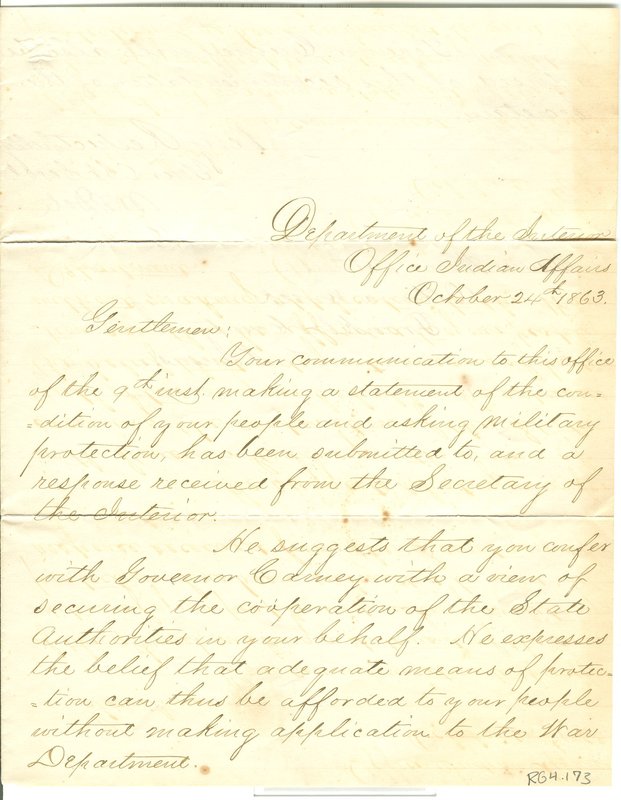 Department of the Interior
Office Indian Affairs
October 24th 1863.
Gentlemen:
Your communication to this office
of the 9th inst. making a statement of the con=
=dition of your people and asking military
protection, has been submitted to, and a
response received from the Secretary of
the Interior.
He suggests that you confer
with Governor Carney with a view of
securing the cooperation of the State
Authorities in your behalf. He expresses
the belief that adequate means of protec=
=tion can thus be afforded to your people
without making application to the War
Department.
RG4.173